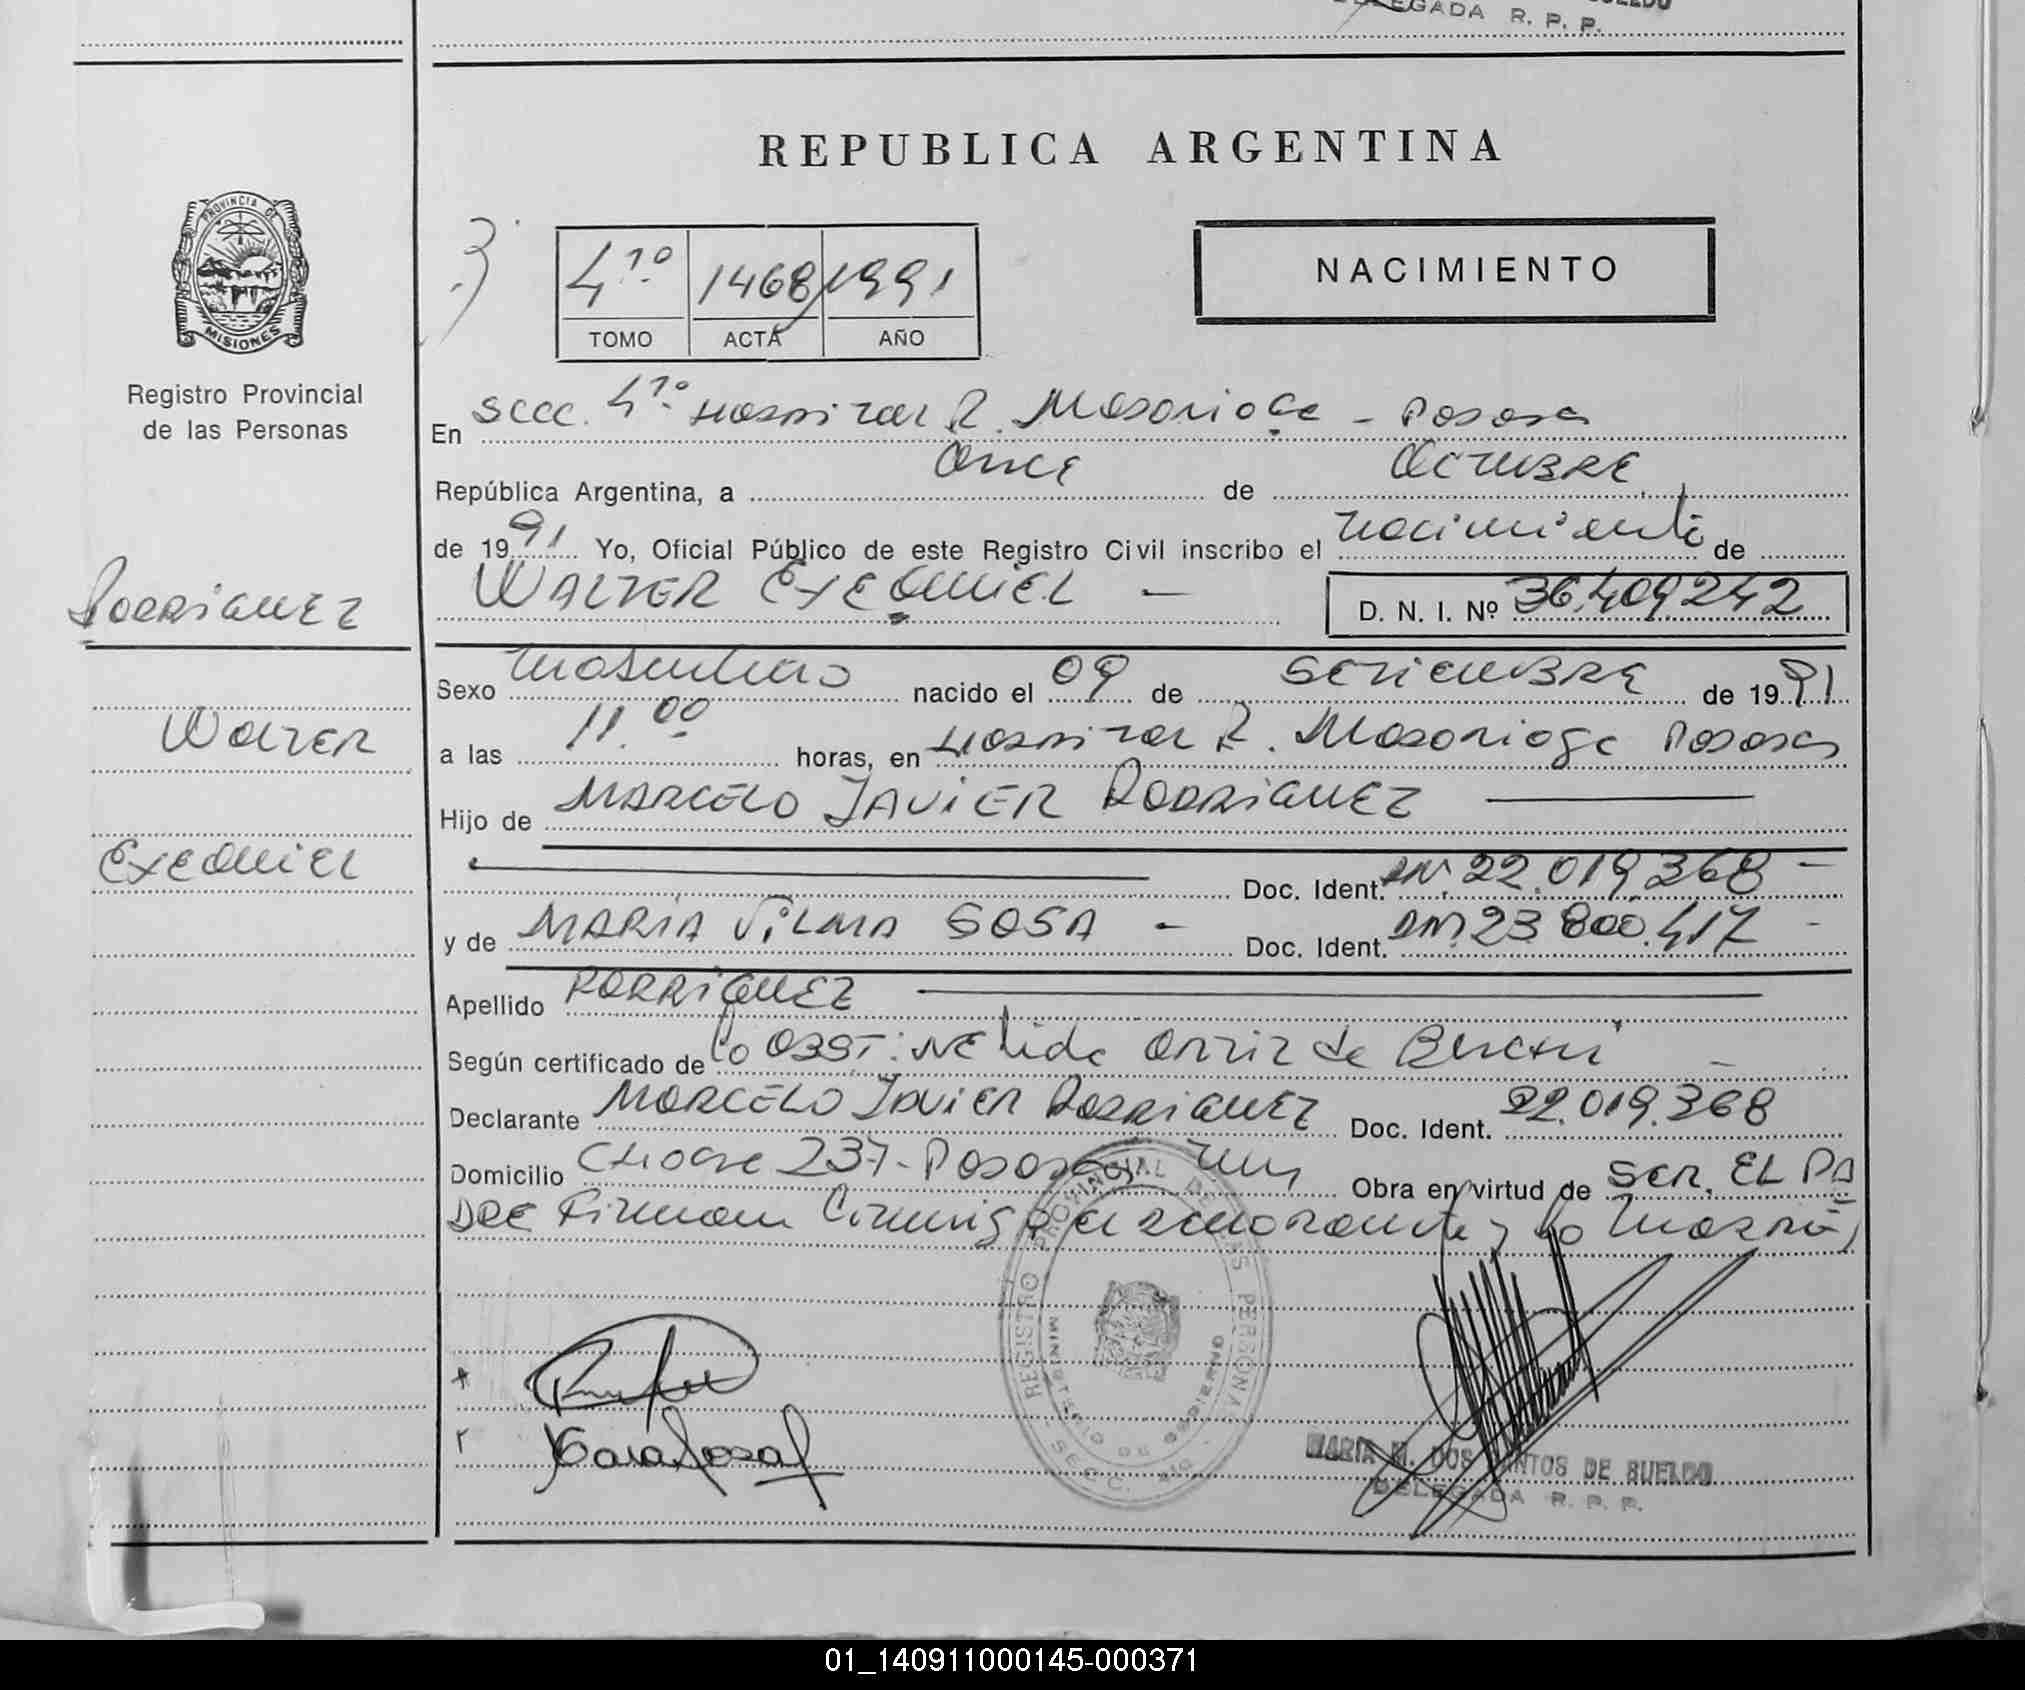 DELEGADA R. P. P.
REPUBLICA ARGENTINA
PROVINCIA DE
MISIONES
Registro Provincial
de las Personas
4to 1468 1991
TOMO ACTA AÑO
NACIMIENTO
En Secc. 4to Hospital R. Madariaga - Posadas
República Argentina, a Once de Octubre
de 1991 Yo, Oficial Público de este Registro Civil inscribo el nacimiento de
WALTER EXEQUIEL — D. N. I. Nº 36.409.242
RODRIGUEZ
WALTER
EXEQUIEL
Sexo masculino nacido el 09 de SETIEMBRE de 1991
a las 11.00 horas, en Hospital R. Madariaga Posadas
Hijo de MARCELO JAVIER RODRIGUEZ
Doc. Ident. 22.019.368 -
y de MARIA VILMA SOSA - Doc. Ident. 23.800.417 -
Apellido RODRIGUEZ
Según certificado de la OBST: NELIDA ORTIZ de
Declarante MARCELO JAVIER RODRIGUEZ Doc. Ident. 22.019.368
Domicilio 237 - Posadas Obra en virtud de SER. EL PA
DRE Firman Conmigo el declarante y la madre
REGISTRO PROVINCIAL DE LAS PERSONAS
MINISTERIO DE GOBIERNO
SECC. 4ta
MARIA M. DOS SANTOS DE SUELDO
DELEGADA R. P. P.
01_140911000145-000371